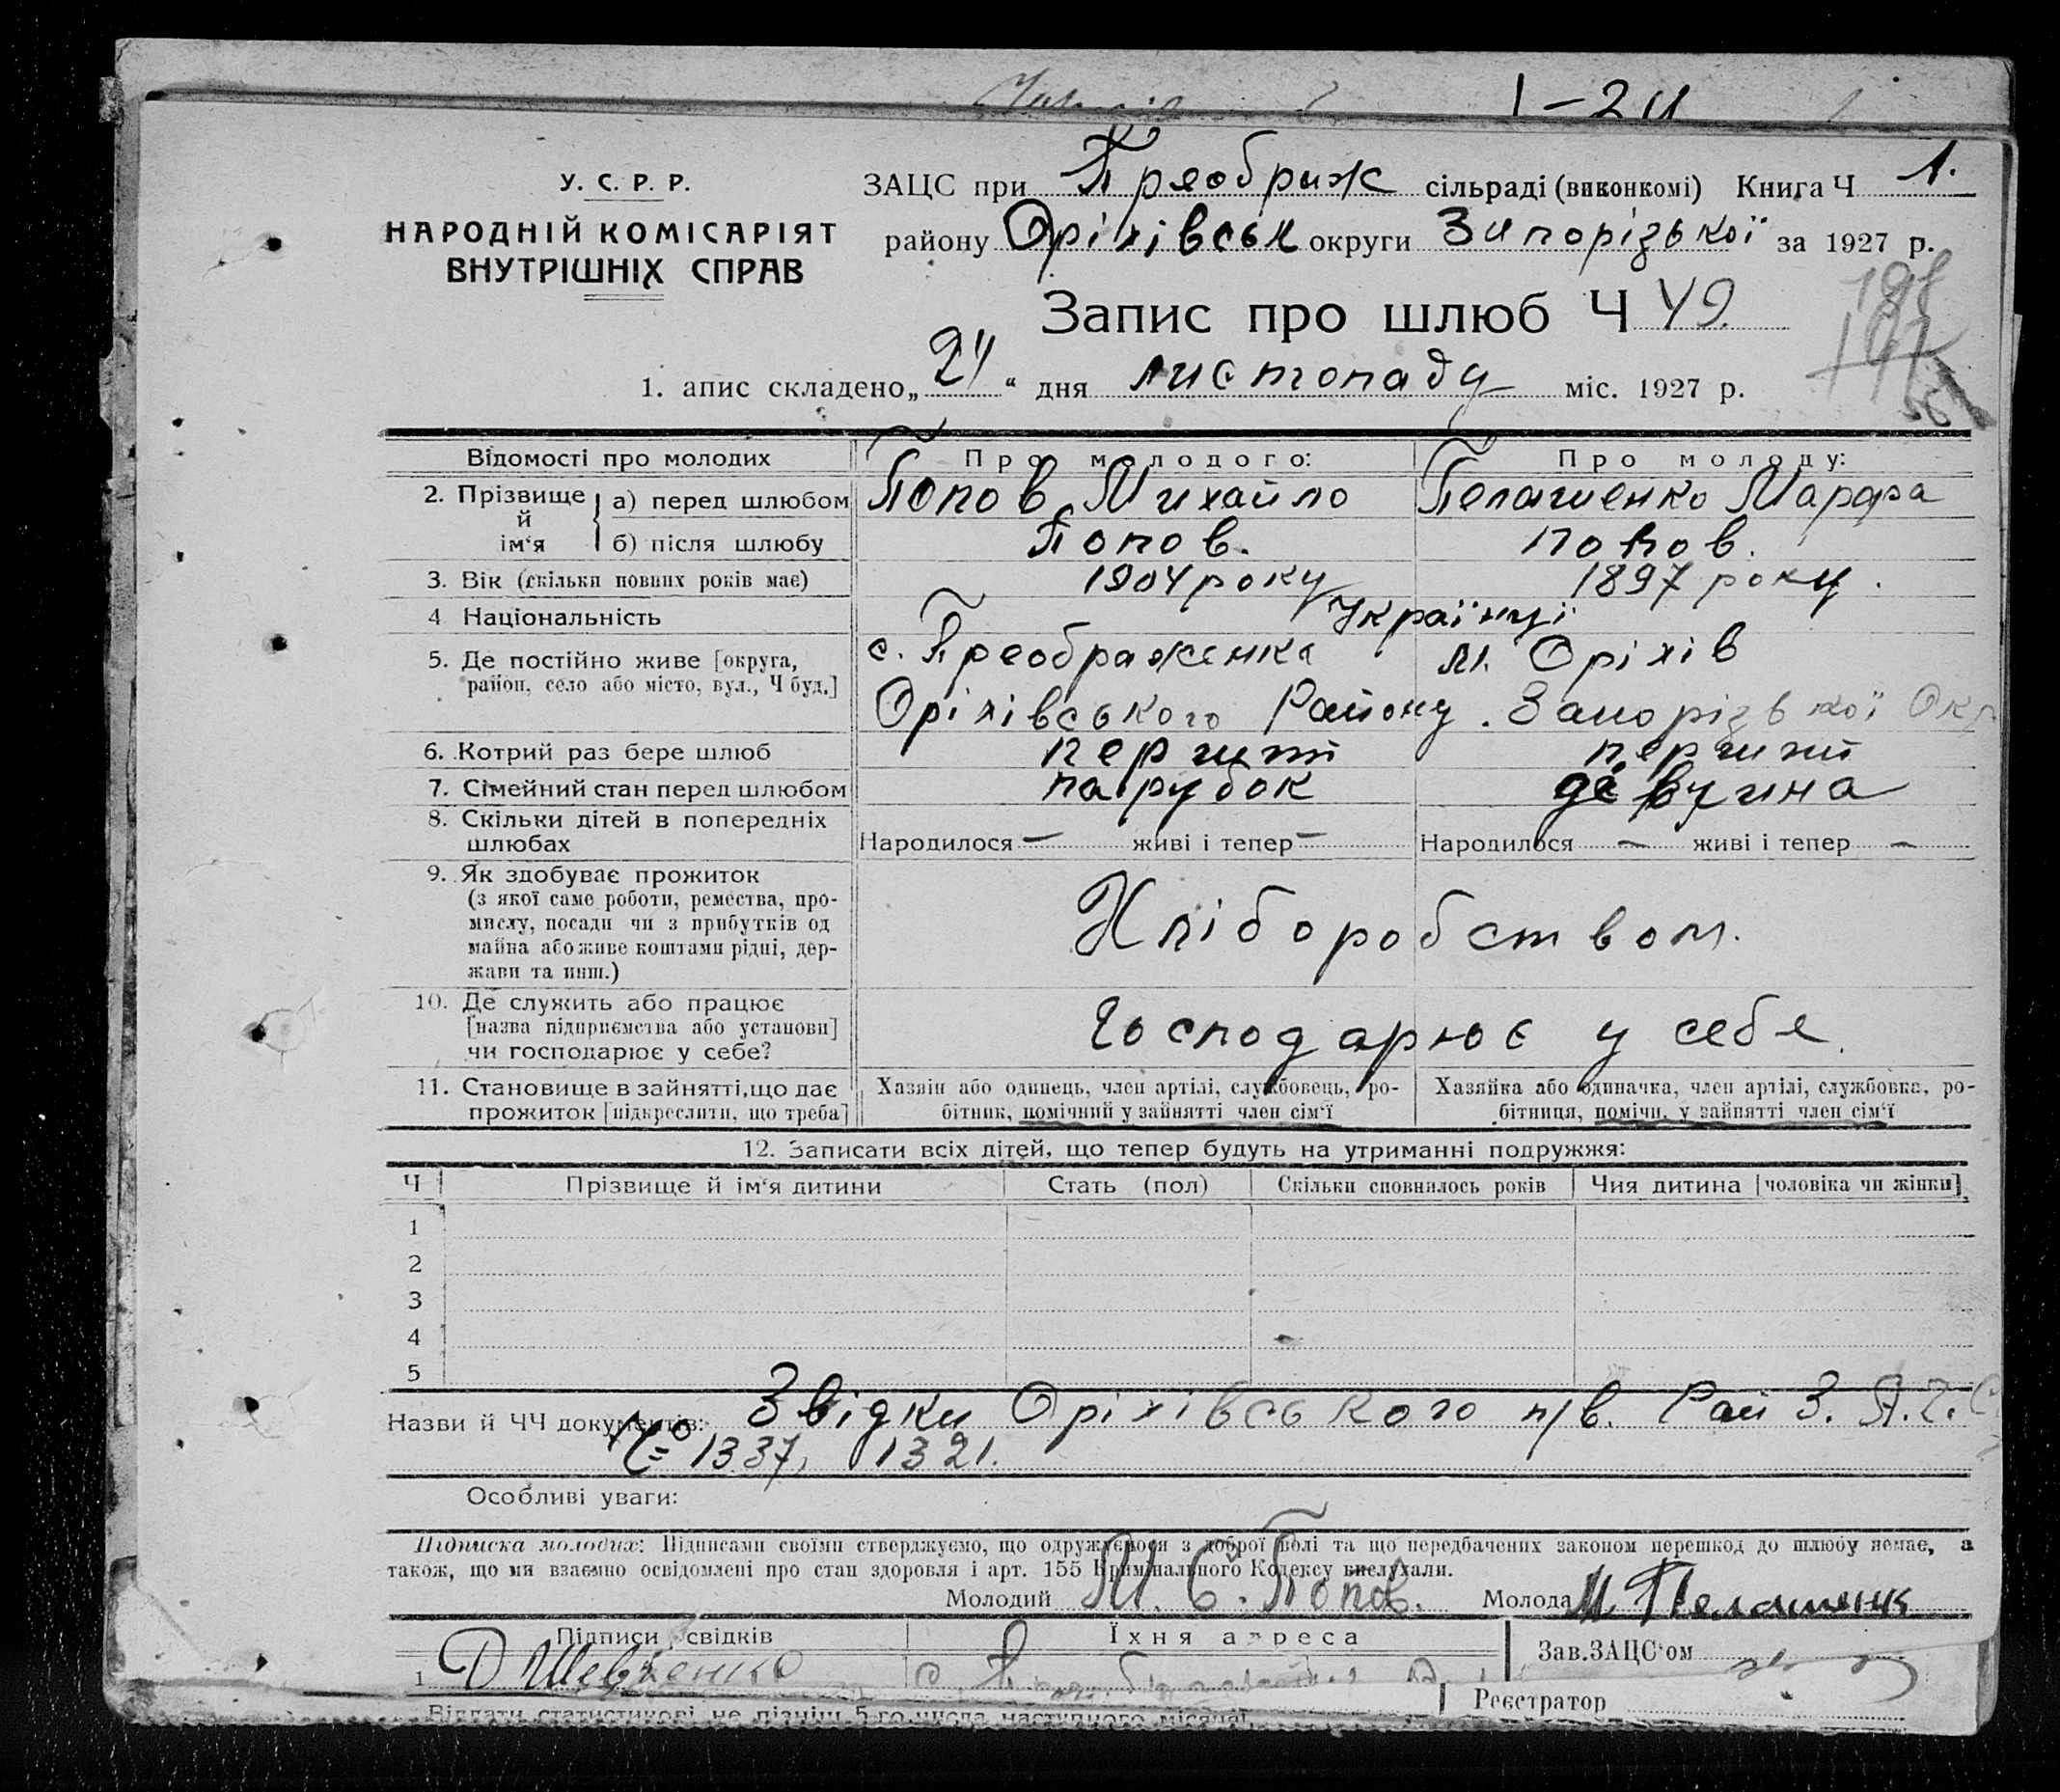 1-24
У. С. Р. Р.
НАРОДНІЙ КОМІСАРІЯТ
ВНУТРІШНІХ СПРАВ
ЗАЦС при Преображ сільраді (виконкомі) Книга Ч 1.
району Оріхівськ округи Запорізької за 1927 р.
Запис про шлюб Ч 49.
198
1. апис складено „24“ дня листопаду міс. 1927 р.
Відомості про молодих Про молодого: Про молоду:
2. Прізвище й ім‘я а) перед шлюбом Попов Михайло Пелашенко Марфа
б) після шлюбу Попов. Попов.
3. Вік (скільки повних років має) 1904 року 1897 року.
4 Національність Українці
5. Де постійно живе [округа, район, село або місто, вул., Ч буд.] с. Преображенка м. Оріхів
Оріхівського Району. Запорізької Окр
6. Котрий раз бере шлюб перший перший
7. Сімейний стан перед шлюбом парубок дівчина
8. Скільки дітей в попередніх шлюбах Народилося — живі і тепер — Народилося — живі і тепер —
9. Як здобуває прожиток
(з якої саме роботи, ремества, про-
мислу, посади чи з прибутків од
майна або живе коштами рідні, дер-
жави та инш.)
Хліборобством.
10. Де служить або працює
[назва підприємства або установи]
чи господарює у себе?
Господарює у себе.
11. Становище в зайнятті, що дає
прожиток [підкреслити, що треба]
Хазяїн або одинець, член артілі, службовець, ро-
бітник, помічний у зайнятті член сім‘ї
Хазяйка або одиначка, член артілі, службовка, ро-
бітниця, помічн. у зайнятті член сім‘ї
12. Записати всіх дітей, що тепер будуть на утриманні подружжя:
Ч Прізвище й ім‘я дитини Стать (пол) Скільки сповнилось років Чия дитина [чоловіка чи жінки]
1
2
3
4
5
Назви й ЧЧ документів: Звідки Оріхівського п/в. Рай З. А. Г. С
№ 1337, 1321.
Особливі уваги:
Підписка молодих: Підписами своїми стверджуємо, що одружуємося з доброї волі та що передбачених законом перешкод до шлюбу немає, а
також, що ми взаємно освідомлені про стан здоровля і арт. 155 Кримінального Кодексу вислухали.
Молодий М. С. Попов. Молода М Пелашенк
Підписи свідків Їхня адреса Зав. ЗАЦС‘ом
1 Д Шевченко с.
Реєстратор
Віддати статистикові не пізніш 5-го числа наступного місяця